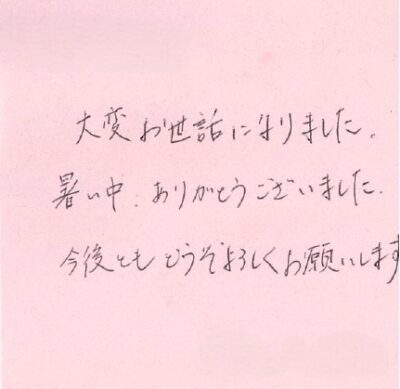 大変お世話になりました。
暑い中、ありがとうございました。
今後ともどうぞよろしくお願いします